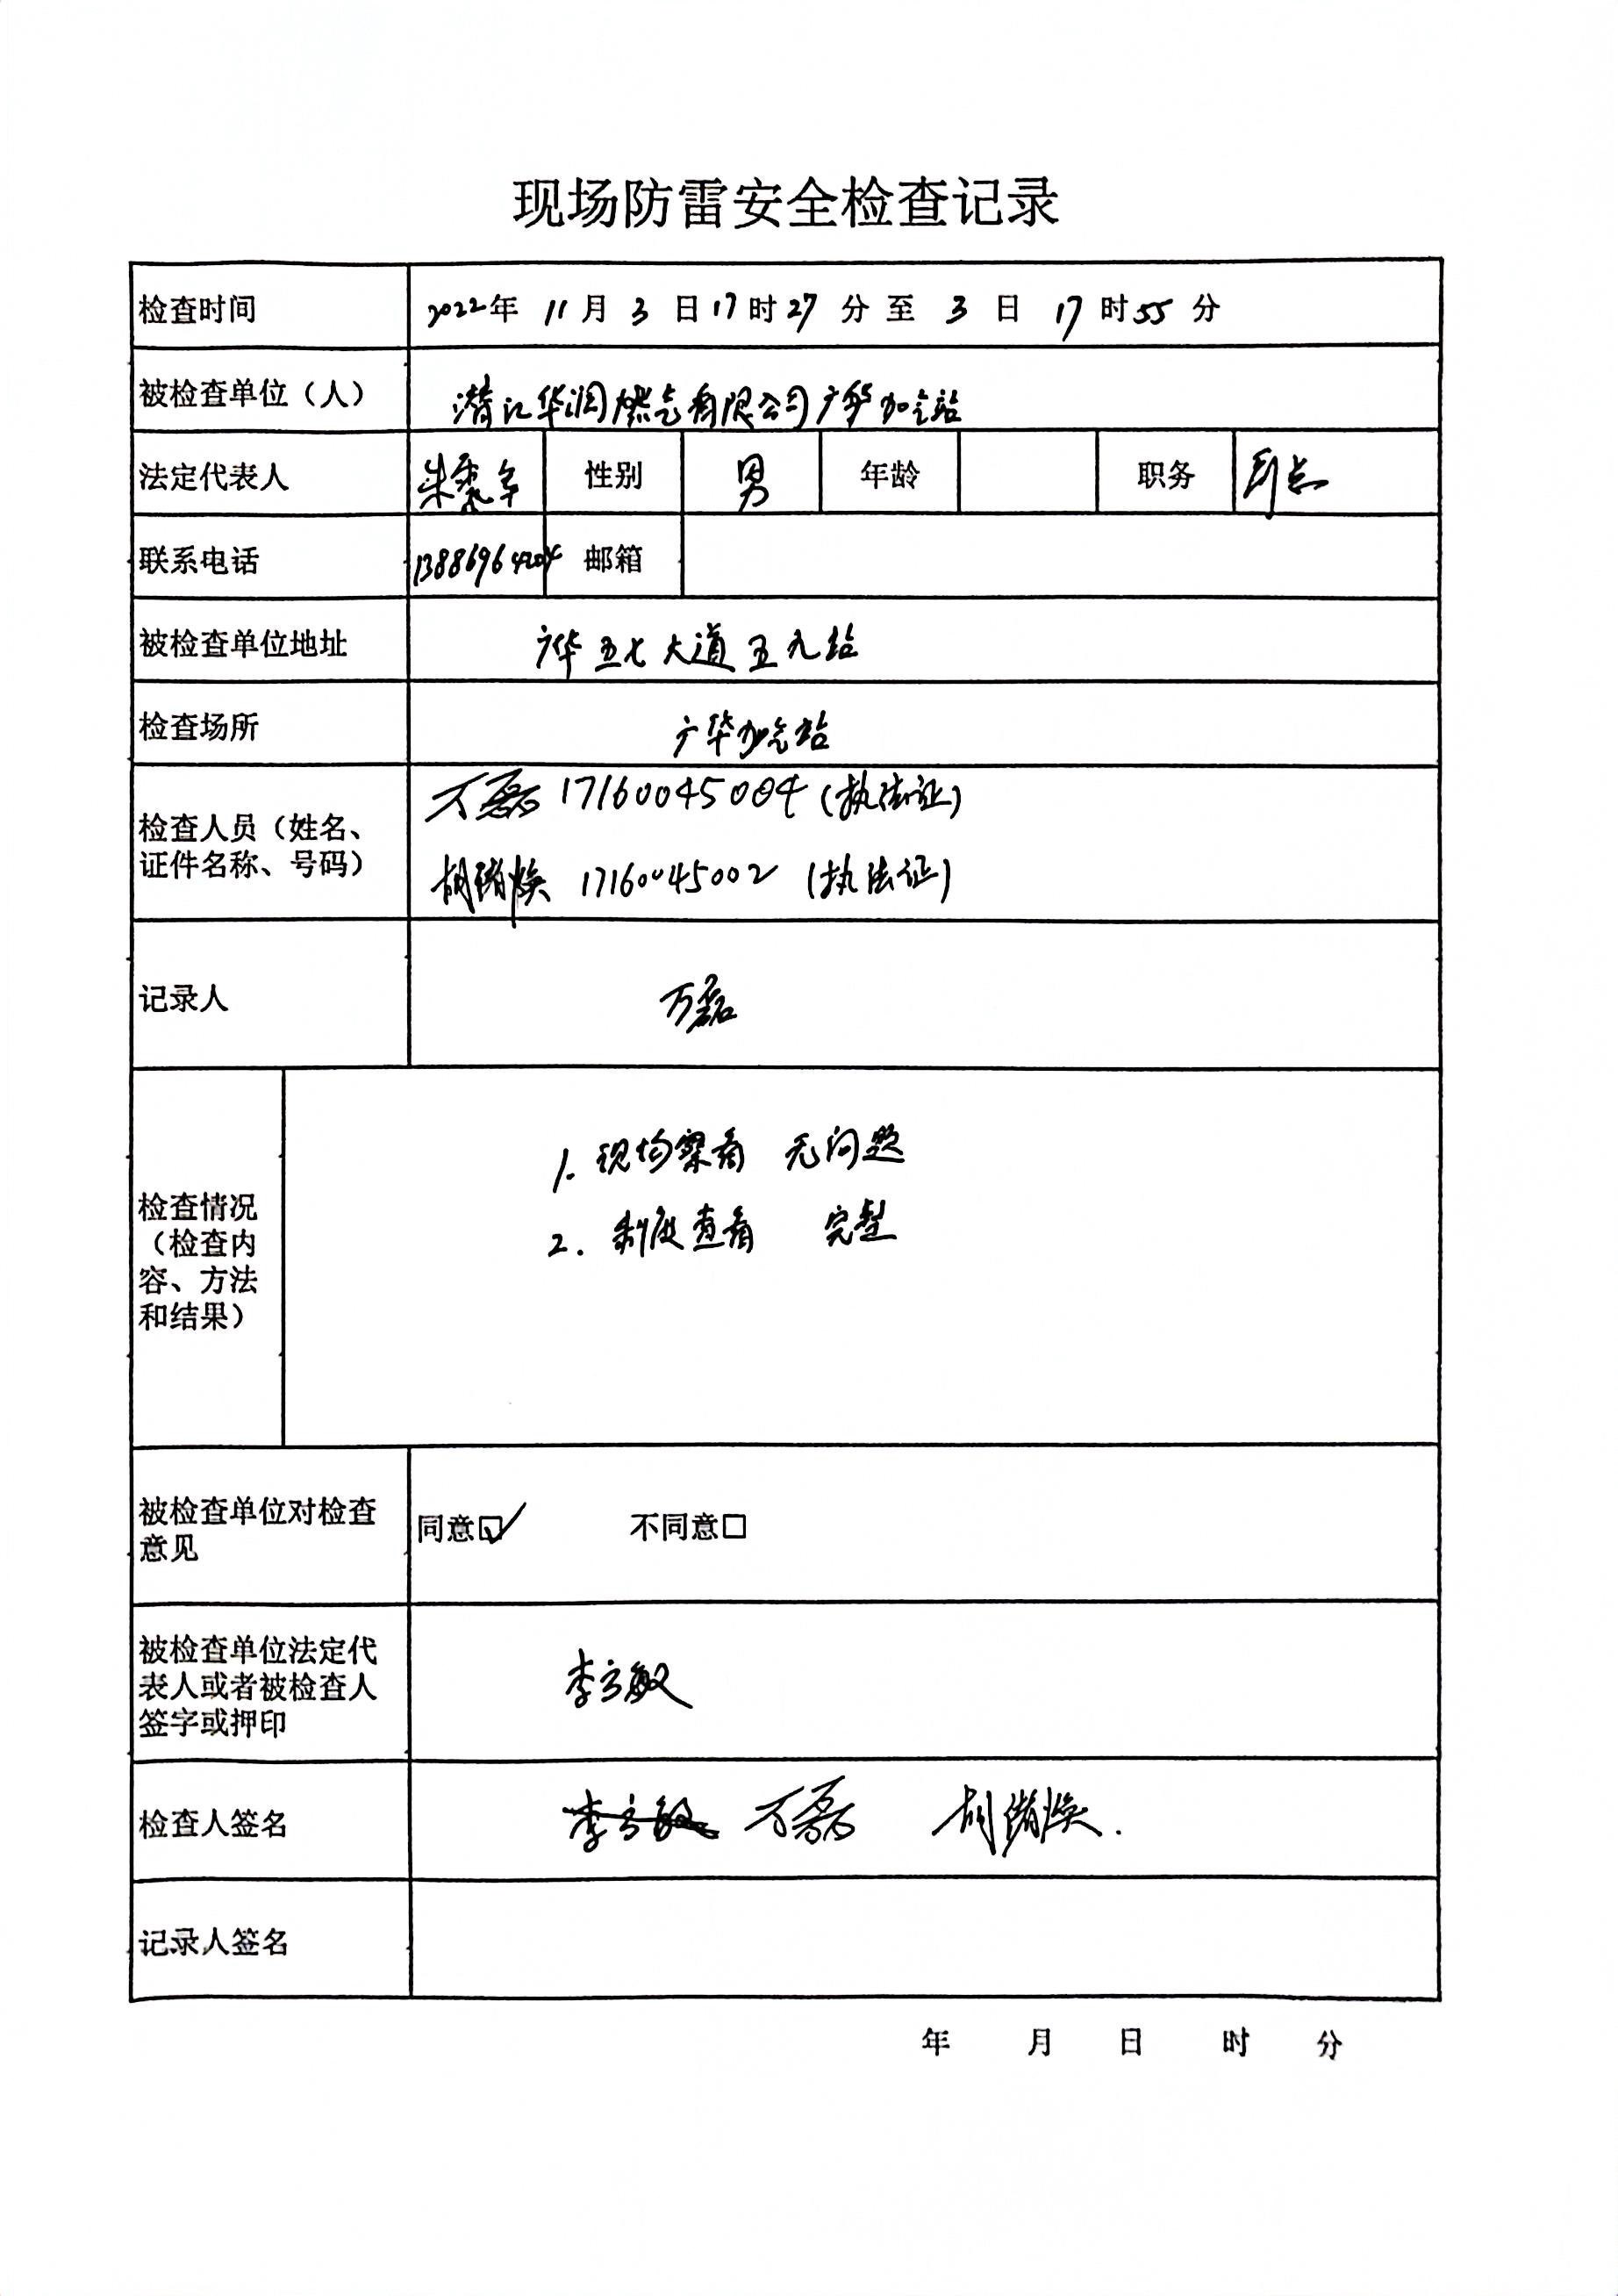 现场防雷安全检查记录
检查时间 2022年 11月 3日17时27分至 3日 17时55分
被检查单位（人） 潜江华润燃气有限公司广华加气站
法定代表人 朱 军 性别 男 年龄 职务
联系电话 13886964204 邮箱
被检查单位地址 广华五七大道五九站
检查场所 广华加气站
检查人员（姓名、
证件名称、号码）
万磊 17160045004（执法证）
胡绪焕 17160045002（执法证）
记录人 万磊
检查情况
（检查内
容、方法
和结果）
1. 现场察看 无问题
2. 制度查看 完整
被检查单位对检查
意见
同意☑ 不同意□
被检查单位法定代
表人或者被检查人
签字或押印
李方敏
检查人签名 李方敏 万磊 胡绪焕.
记录人签名
年 月 日 时 分